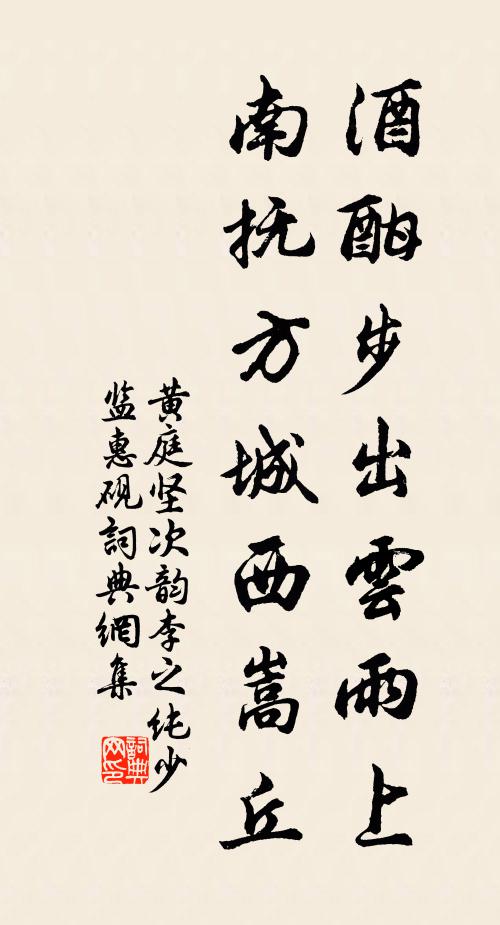 酒酣步出雲雨上
南抚方城西嵩丘
黄庭坚次韵李之纯少
监惠砚詞典網集
詞典
网印